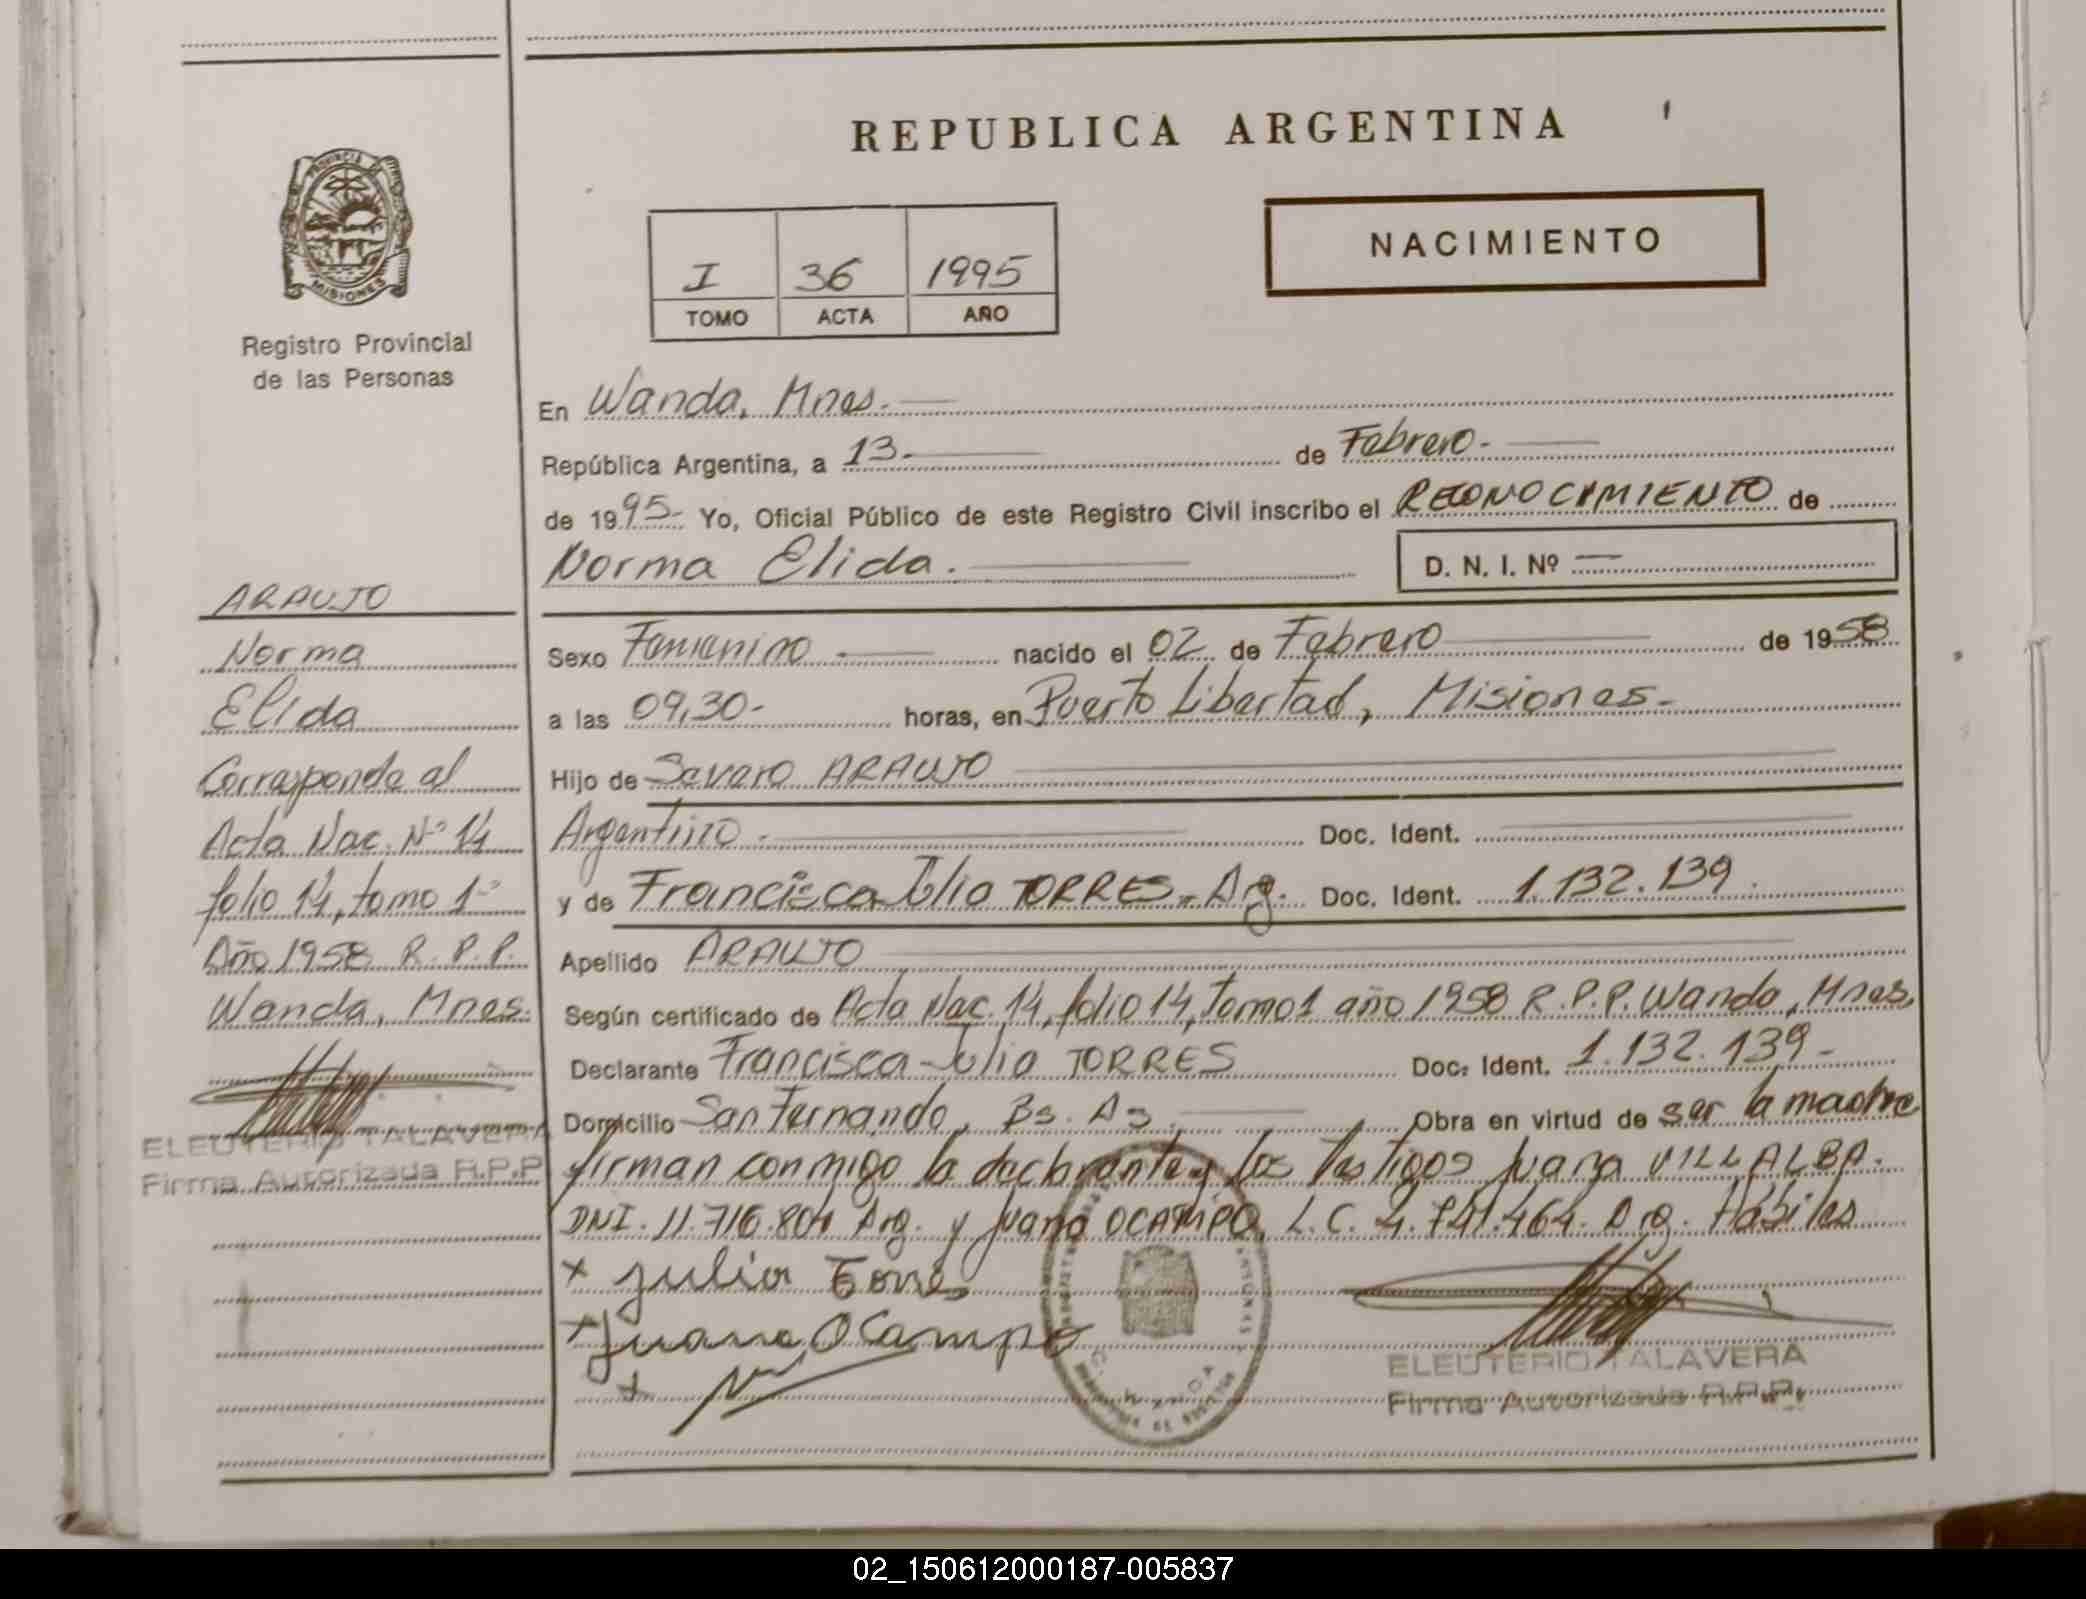 REPUBLICA ARGENTINA
NACIMIENTO
I 36 1995
TOMO ACTA AÑO
PROVINCIA
MISIONES
Registro Provincial
de las Personas
ARAUJO
Norma
Elida
Corresponde al
Acta Nac. Nº 14
folio 14, tomo 1º
Año 1958 R. P. P.
Wanda, Mnes.
ELEUTERIO TALAVERA
Firma Autorizada R.P.P
En Wanda, Mnes.
República Argentina, a 13 de Febrero
de 1995 Yo, Oficial Público de este Registro Civil inscribo el RECONOCIMIENTO de
Norma Elida. D. N. I. Nº
Sexo Femenino nacido el 02 de Febrero de 1958
a las 09,30 horas, en Puerto Libertad, Misiones
Hijo de Severo ARAUJO
Argentino Doc. Ident.
y de Francisca Julia TORRES. Arg. Doc. Ident. 1.132.139
Apellido ARAUJO
Según certificado de Acta Nac. 14, folio 14, tomo 1 año 1958 R. P. P. Wanda, Mnes.
Declarante Francisca Julia TORRES Doc. Ident. 1.132.139
Domicilio San Fernando, Bs. As. Obra en virtud de ser la madre
firman conmigo la declarante y los testigos Juana VILLALBA.
DNI. 11.716.801 Arg. y Juana OCAMPO L. C. 4.741.464. Arg. Hábiles
x Julia Torres
x Juana OCampo
x
ELEUTERIO TALAVERA
Firma Autorizada R.P.P.
02_150612000187-005837